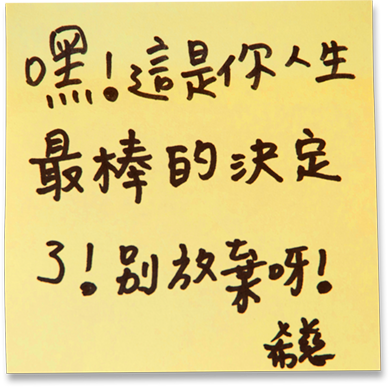 嘿！這是你人生
最棒的決定
了！別放棄呀！
希慈